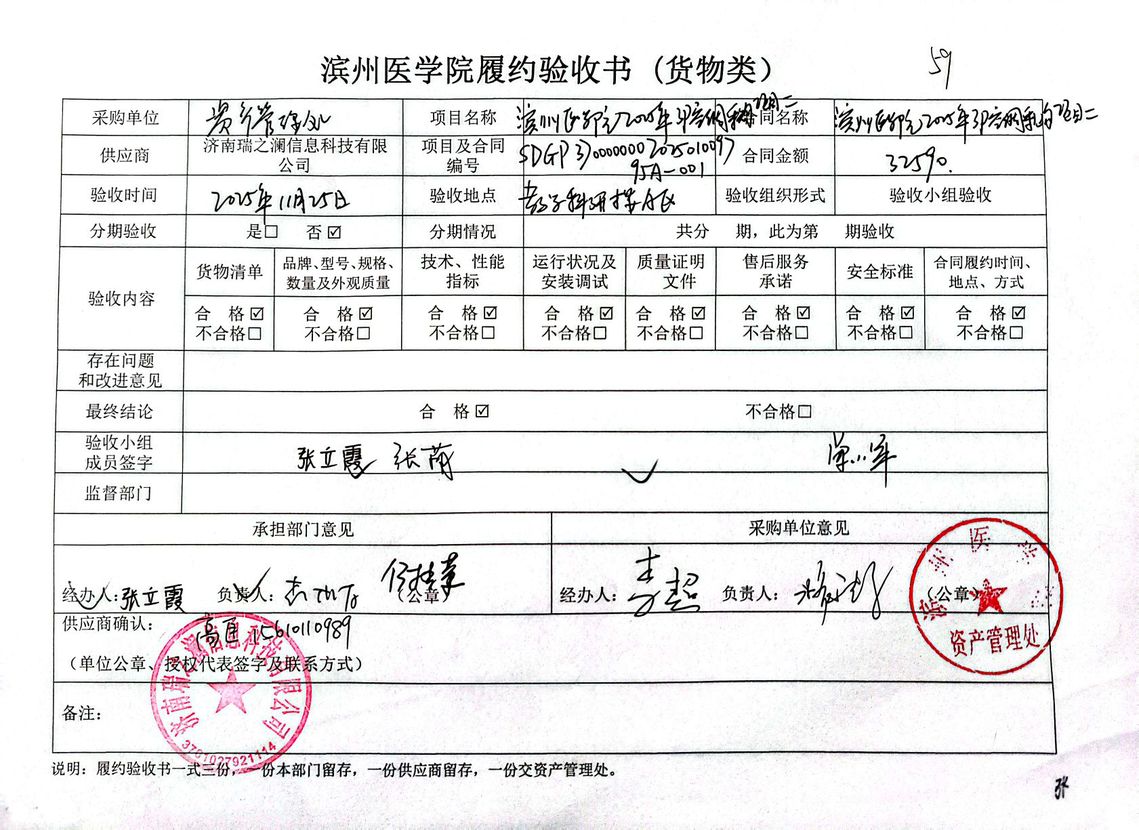 滨州医学院履约验收书（货物类）
59
采购单位
项目名称
滨州医学院2025年
合同名称
滨州医学院2025年
供应商
济南瑞之澜信息科技有限
公司
项目及合同
编号
SDGP370000000202501009795A-001
合同金额
32590.
验收时间
2025年11月25日
验收地点
科研楼A区
验收组织形式
验收小组验收
分期验收
是□ 否☑
分期情况
共分 期，此为第 期验收
验收内容
货物清单
品牌、型号、规格、
数量及外观质量
技术、性能
指标
运行状况及
安装调试
质量证明
文件
售后服务
承诺
安全标准
合同履约时间、
地点、方式
合 格☑ 合 格☑ 合 格☑ 合 格☑ 合 格☑ 合 格☑ 合 格☑ 合 格☑
不合格□ 不合格□ 不合格□ 不合格□ 不合格□ 不合格□ 不合格□ 不合格□
存在问题
和改进意见
最终结论
合 格☑ 不合格□
验收小组
成员签字
张立霞
监督部门
承担部门意见 采购单位意见
经办人：张立霞 负责人： （公章）
经办人： 负责人： （公章）
滨州医学院
资产管理处
供应商确认：
高通 15610110989
（单位公章、授权代表签字及联系方式）
济南瑞之澜信息科技有限公司
3701027921114
备注：
说明：履约验收书一式三份，一份本部门留存，一份供应商留存，一份交资产管理处。